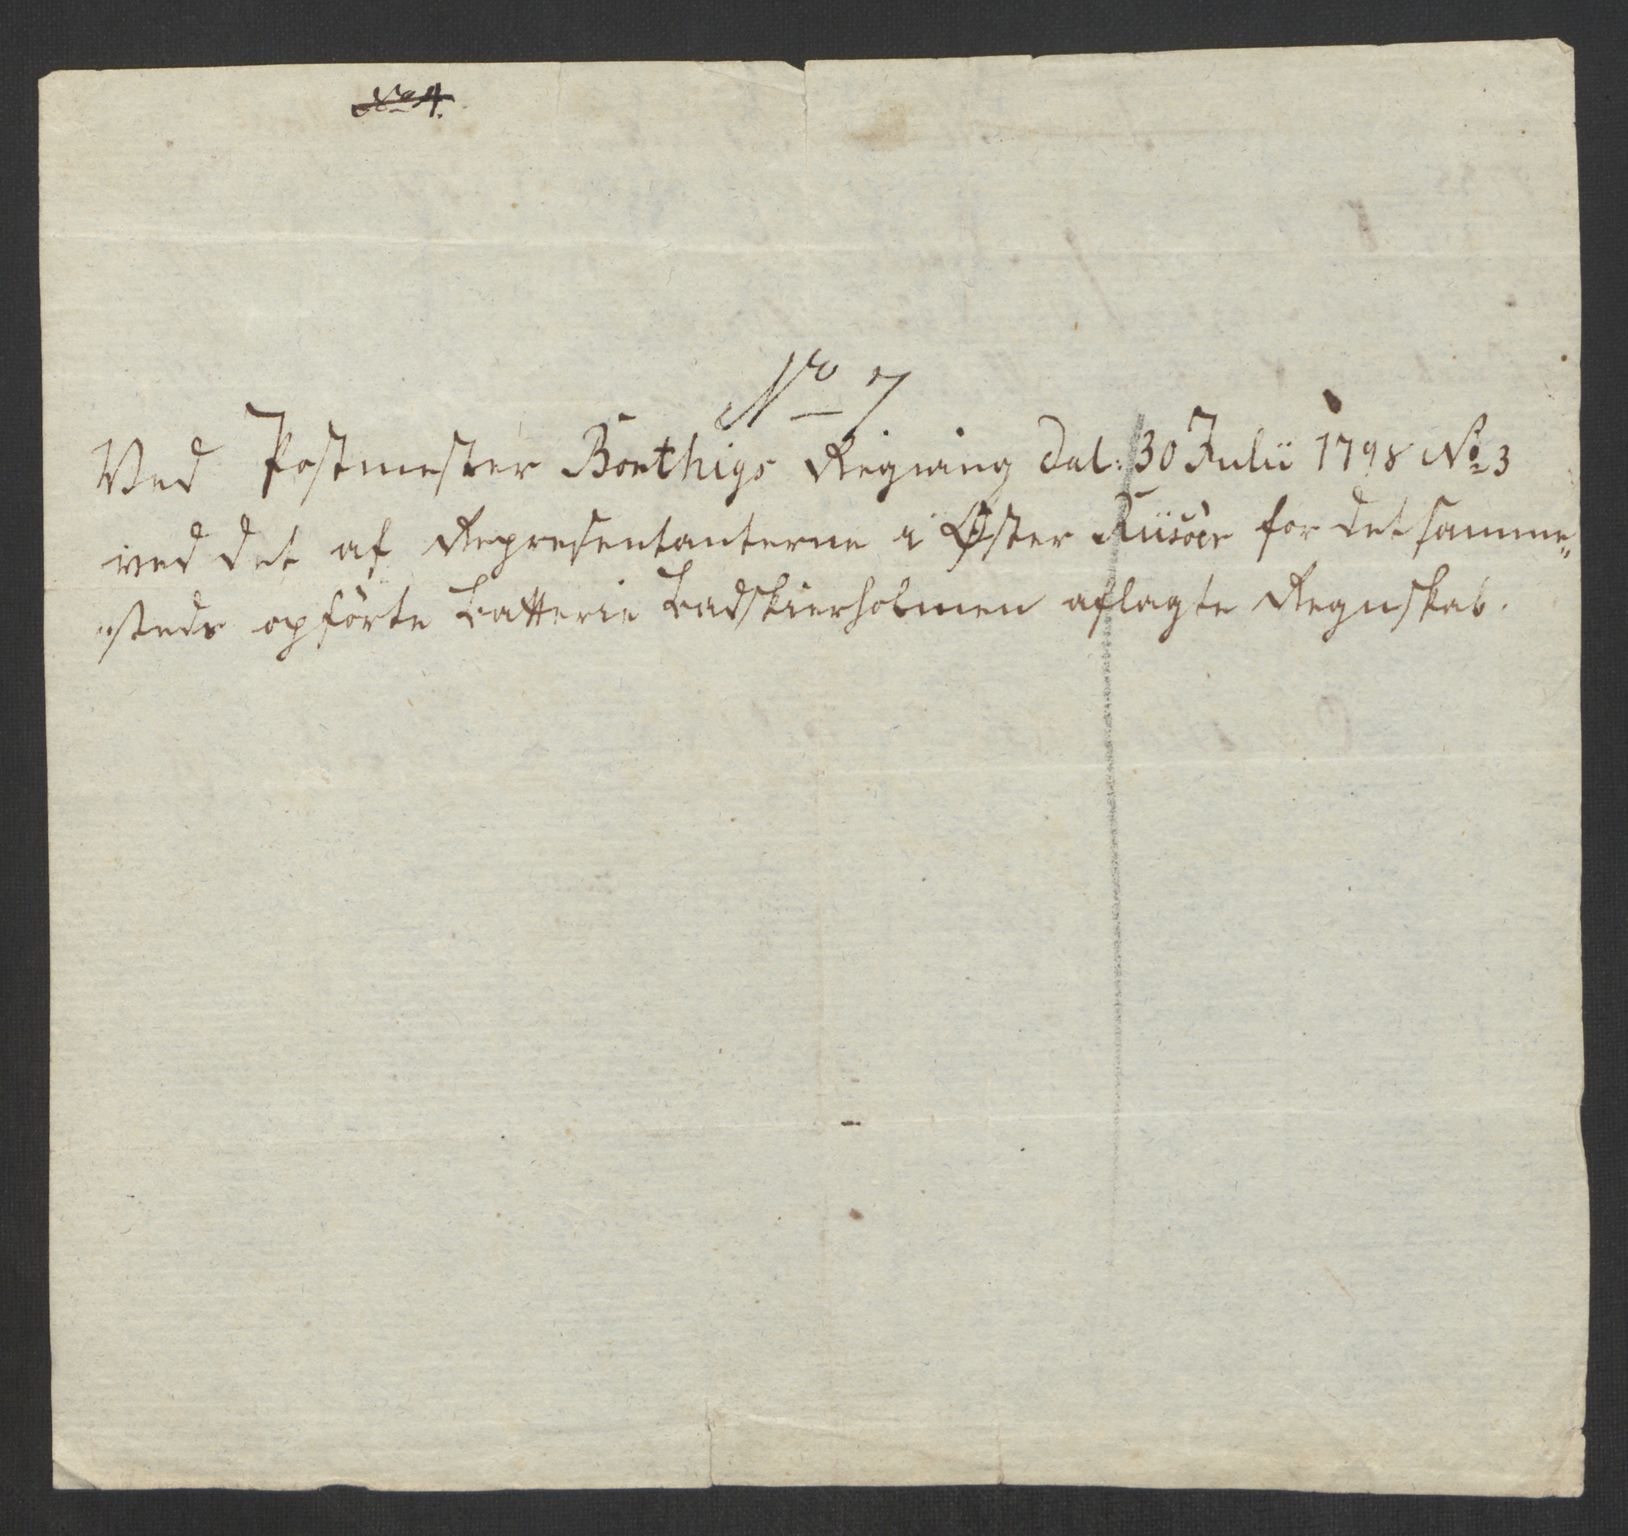 No 4.
No 7
Ved Postmester Boethigs Regning Dat: 30 Julii 1798 No 3
ved det af Repræsentanterne i Øster Riisöer for det samme„
„steds opförte Batterie Ladskierholmen aflagte Regnskab.